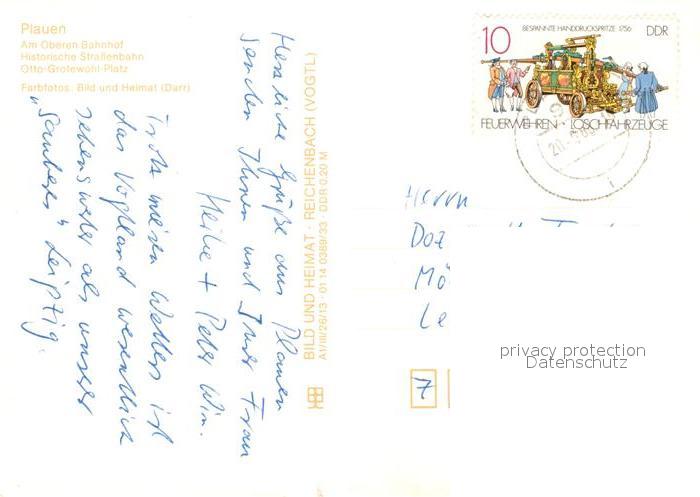 Plauen
Am Oberen Bahnhof
Historische Straßenbahn
Otto-Grotewohl-Platz
Farbfotos: Bild und Heimat (Darr)
Herzliche Grüße aus Plauen
senden Ihnen und Ihrer Frau
Heike + Peter Win.
Trotz miesen Wetters ist
das Vogtland wesentlich
sehenswerter als unser
"sauberes" Leipzig.
BILD UND HEIMAT · REICHENBACH (VOGTL)
A1/III/26/13 · 01 14 0389/33 · DDR 0,20 M
10
BESPANNTE HANDDRUCKSPRITZE 1756
DDR
FEUERWEHREN · LÖSCHFAHRZEUGE
Herrn
Doz
Mö
Le
7
privacy protection
Datenschutz